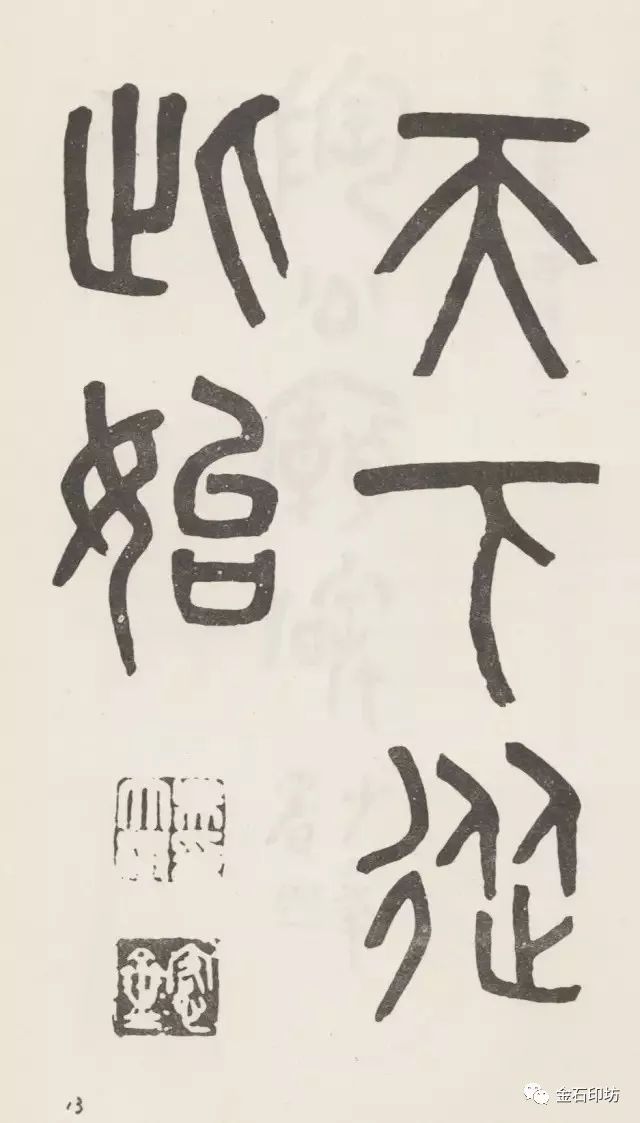 天下從
此始
13
金石印坊